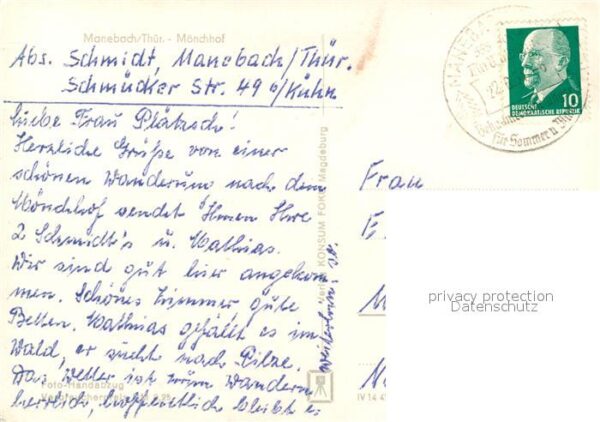 Manebach/Thür. - Mönchhof
Abs. Schmidt, Manebach/Thür.
Schmücker Str. 49 b/Kühn
Liebe Frau Plätzsch!
Herzliche Grüße von einer
schönen Wanderung nach dem
Mönchhof sendet Ihnen Ihre
2 Schmidt's u. Mathias.
Wir sind gut hier angekom
men. Schönes Zimmer gute
Betten. Mathias gefällt es im
Wald, er sucht nach Pilze.
Das Wetter ist zum Wandern
herrlich, hoffentlich bleibt es
weiterhin so.
Foto-Handabzug
KONSUM FOKO Magdeburg
IV 14 4
Frau
MANEBA
22.
für Sommer u
DEUTSCHE
DEMOKRATISCHE REPUBLIK
10
privacy protection
Datenschutz